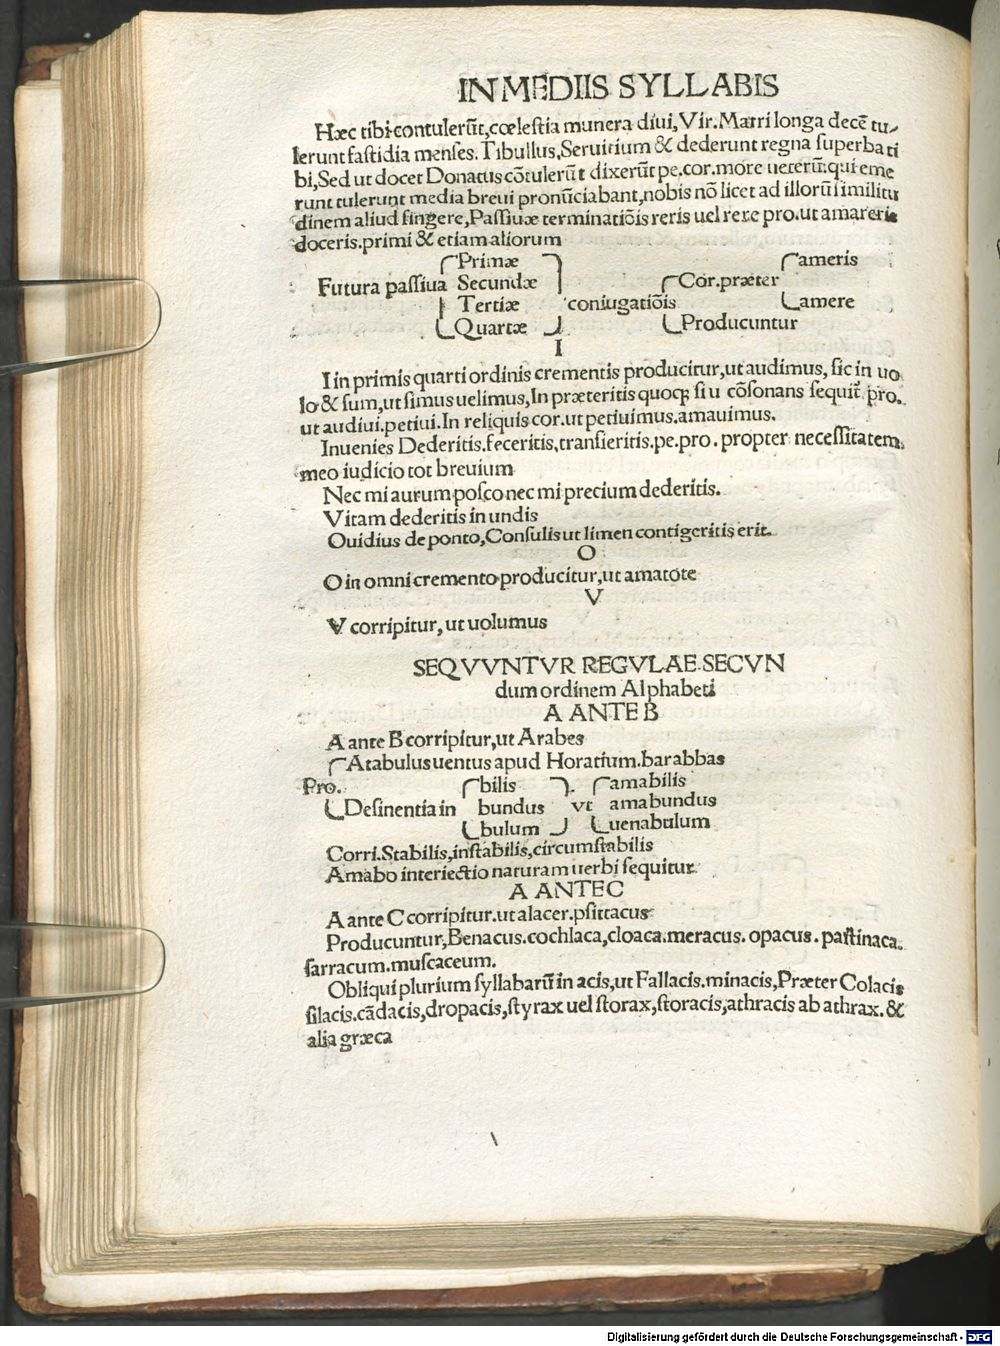 IN MEDIIS SYLLABIS
Hæc tibi contulerūt, cœlestia munera diui, Vir. Matri longa decē tu-
lerunt fastidia menses. Tibullus, Seruitium & dederunt regna superba ti
bi, Sed ut docet Donatus cōtulerūt dixerūt pe. cor. more ueterū: qui eme
runt tulerunt media breui pronūciabant, nobis nō licet ad illorū similitu
dinem aliud fingere, Passiuæ terminatiōis reris uel rere pro. ut amareris
doceris. primi & etiam aliorum
Primæ ameris
Futura passiua Secundæ Cor. præter
Tertiæ coniugatiōis amere
Quartæ Producuntur
I
I in primis quarti ordinis crementis producitur, ut audimus, sic in uo
lo & sum, ut simus uelimus, In præteritis quoqꝫ si u cōsonans sequit̃ pro.
ut audiui. petiui. In reliquis cor. ut petiuimus. amauimus.
Inuenies Dederitis. feceritis, transieritis. pe. pro. propter necessitatem
meo iudicio tot breuium
Nec mi aurum posco nec mi precium dederitis.
Vitam dederitis in undis
Ouidius de ponto, Consulis ut limen contigeritis erit.
O
O in omni cremento producitur, ut amatote
V
V corripitur, ut uolumus
SEQVVNTVR REGVLAE SECVN
dum ordinem Alphabeti
A ANTE B
A ante B corripitur, ut Arabes
Atabulus uentus apud Horatium. barabbas
Pro. bilis amabilis
Desinentia in bundus vt amabundus
bulum uenabulum
Corri. Stabilis, instabilis, circumstabilis
Amabo interiectio naturam uerbi sequitur
A ANTE C
A ante C corripitur. ut alacer. psittacus
Producuntur, Benacus. cochlaca, cloaca. meracus. opacus. pastinaca.
sarracum. muscaceum.
Obliqui plurium syllabarū in acis, ut Fallacis. minacis, Præter Colacis
silacis. cādacis, dropacis, styrax uel storax, storacis, athracis ab athrax. &
alia græca
Digitalisierung gefördert durch die Deutsche Forschungsgemeinschaft - DFG